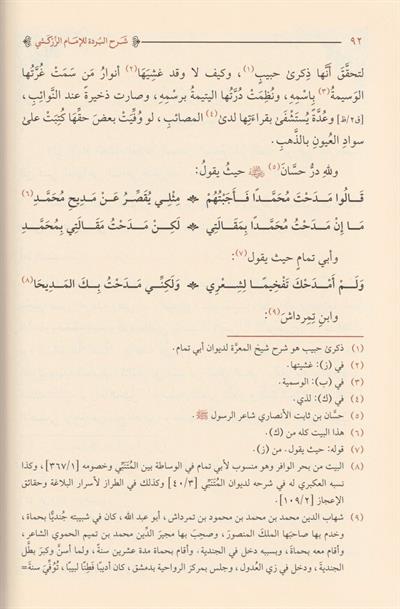 ٩٢ شَرح البُردة للإمَام الزّركَشي
لتحقَّقَ أنَّها ذِكرىٰ حبيبٍ(١)، وكيف لا وقد غشِيَهَا(٢) أنوارُ مَن سَمَتْ غُرَّتُها
الوَسيمةُ(٣) بِاسْمِهِ، ونُظِمَتْ دُرَّتُها اليتيمةُ برسْمِهِ، وصارت ذخيرةً عند النَّوائِبِ،
[ق٢/ظ] وعُدَّةً يُستَشْفَىٰ بقراءَتِها لدىٰ(٤) المصائبِ، لو وُفِّيَتْ بعضَ حقِّهَا كُتِبَتْ علىٰ
سوادِ العُيونِ بالذَّهبِ.
وللهِ درُّ حسَّانَ(٥) ﷺ حيثُ يقولُ:
قَالُوا مَدَحْتَ مُحَمَّدًا فَأَجَبْتُهُمْ مِثْلِي يُقَصِّرُ عَنْ مَدِيحِ مُحَمَّدِ(٦)
مَا إِنْ مَدَحْتُ مُحَمَّدًا بِمَقَالَتِي لَكِنْ مَدَحْتُ مَقَالَتِي بِمُحَمَّدِ
وأبي تمامٍ حيث يقول(٧):
وَلَمْ أَمْدَحْكَ تَفْخِيمًا لِشِعْرِي وَلَكِنِّي مَدَحْتُ بِكَ المَدِيحَا(٨)
وابنِ تِمِرداشَ(٩):
(١) ذكرىٰ حبيب هو شرح شيخ المعرَّة لديوان أبي تمام.
(٢) في (ز): غشيتها.
(٣) في (ب): الوسمية.
(٤) في (ك): لذي.
(٥) حسَّان بن ثابت الأنصاري شاعر الرسول ﷺ.
(٦) هذا البيت كله من (ك).
(٧) قوله: حيث يقول. من (ز).
(٨) البيت من بحر الوافر وهو منسوب لأبي تمام في الوساطة بين المُتنَبِّي وخصومه [٣٦٧/١]، وكذا
نسبه العكبري له في شرحه لديوان المُتنَبِّي [٤٠/٣] وكذلك في الطراز لأسرار البلاغة وحقائق
الإعجاز [١٠٩/٢].
(٩) شهاب الدين محمد بن محمد بن محمود بن تمرداش، أبو عبد الله، كان في شبيبته جُنديًّا بحماة،
وخدم بها صاحبها الملك المنصورَ، وصحِبَ بها مجيرَ الدِّين محمد بن تميم الحموي الشاعر،
وأقام معه بحماةَ، وبسببه دخل في الجندية. وأقام بحماة مدة عشرين سنة، ولما أسنَّ وكبرَ بطَّل
الجنديةَ، ودخل في زي العُدول، وجلس بمركز الرواحية بدمشق، كان أديبًا فَطِنًا لبيبًا، تُوُفِّيَ سنة=